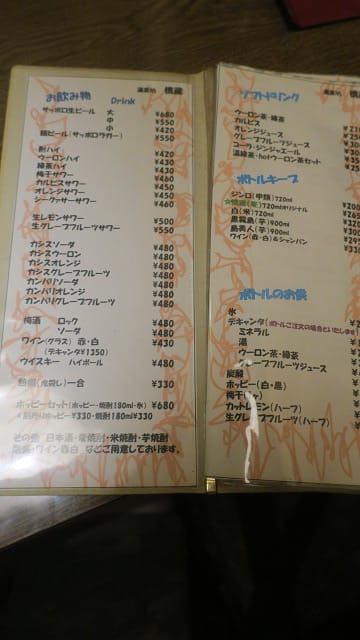 お飲み物 Drink
サッポロ生ビール 大 ¥680
中 ¥550
小 ¥420
瓶ビール(サッポロラガー) ¥550
酎ハイ ¥420
ウーロンハイ ¥430
緑茶ハイ ¥430
梅干サワー ¥450
カルピスサワー ¥450
オレンジサワー ¥450
シークァーサーサワー ¥460
生レモンサワー ¥500
生グレープフルーツサワー ¥550
カシスソーダ ¥480
カシスウーロン ¥480
カシスオレンジ ¥480
カシスグレープフルーツ ¥480
カンパリソーダ ¥480
カンパリオレンジ ¥480
カンパリグレープフルーツ ¥480
梅酒 ロック ¥480
ソーダ ¥480
ワイン(グラス) 赤・白 ¥430
(デキャンタ¥1350)
ウイスキー ハイボール ¥480
一合 ¥330
ホッピーセット(ホッピー・焼酎180ml・氷) ¥680
ホッピー¥330・焼酎180ml¥330
その他 日本酒・米焼酎・芋焼酎
ワイン赤白 などご用意しております。
ソフトドリンク
ウーロン茶・緑茶
カルピス
オレンジジュース
グレープフルーツジュース
コーラ・ジンジャエール
温緑茶・hotウーロン茶セット
ボトルキープ
ジンロ(甲類)720ml
720mlオリジナル
白(米)720ml
黒霧島(芋)900ml
島美人(芋)900ml
ワイン(赤・白)&シャンパン
ボトルのお供
氷
デキャンタ(ボトルご注文の場合といたします
ミネラル
湯
ウーロン茶・緑茶
グレープフルーツジュース
炭酸
ホッピー(白・黒)
梅干
カットレモン(ハーフ)
生グレープフルーツ(ハーフ)